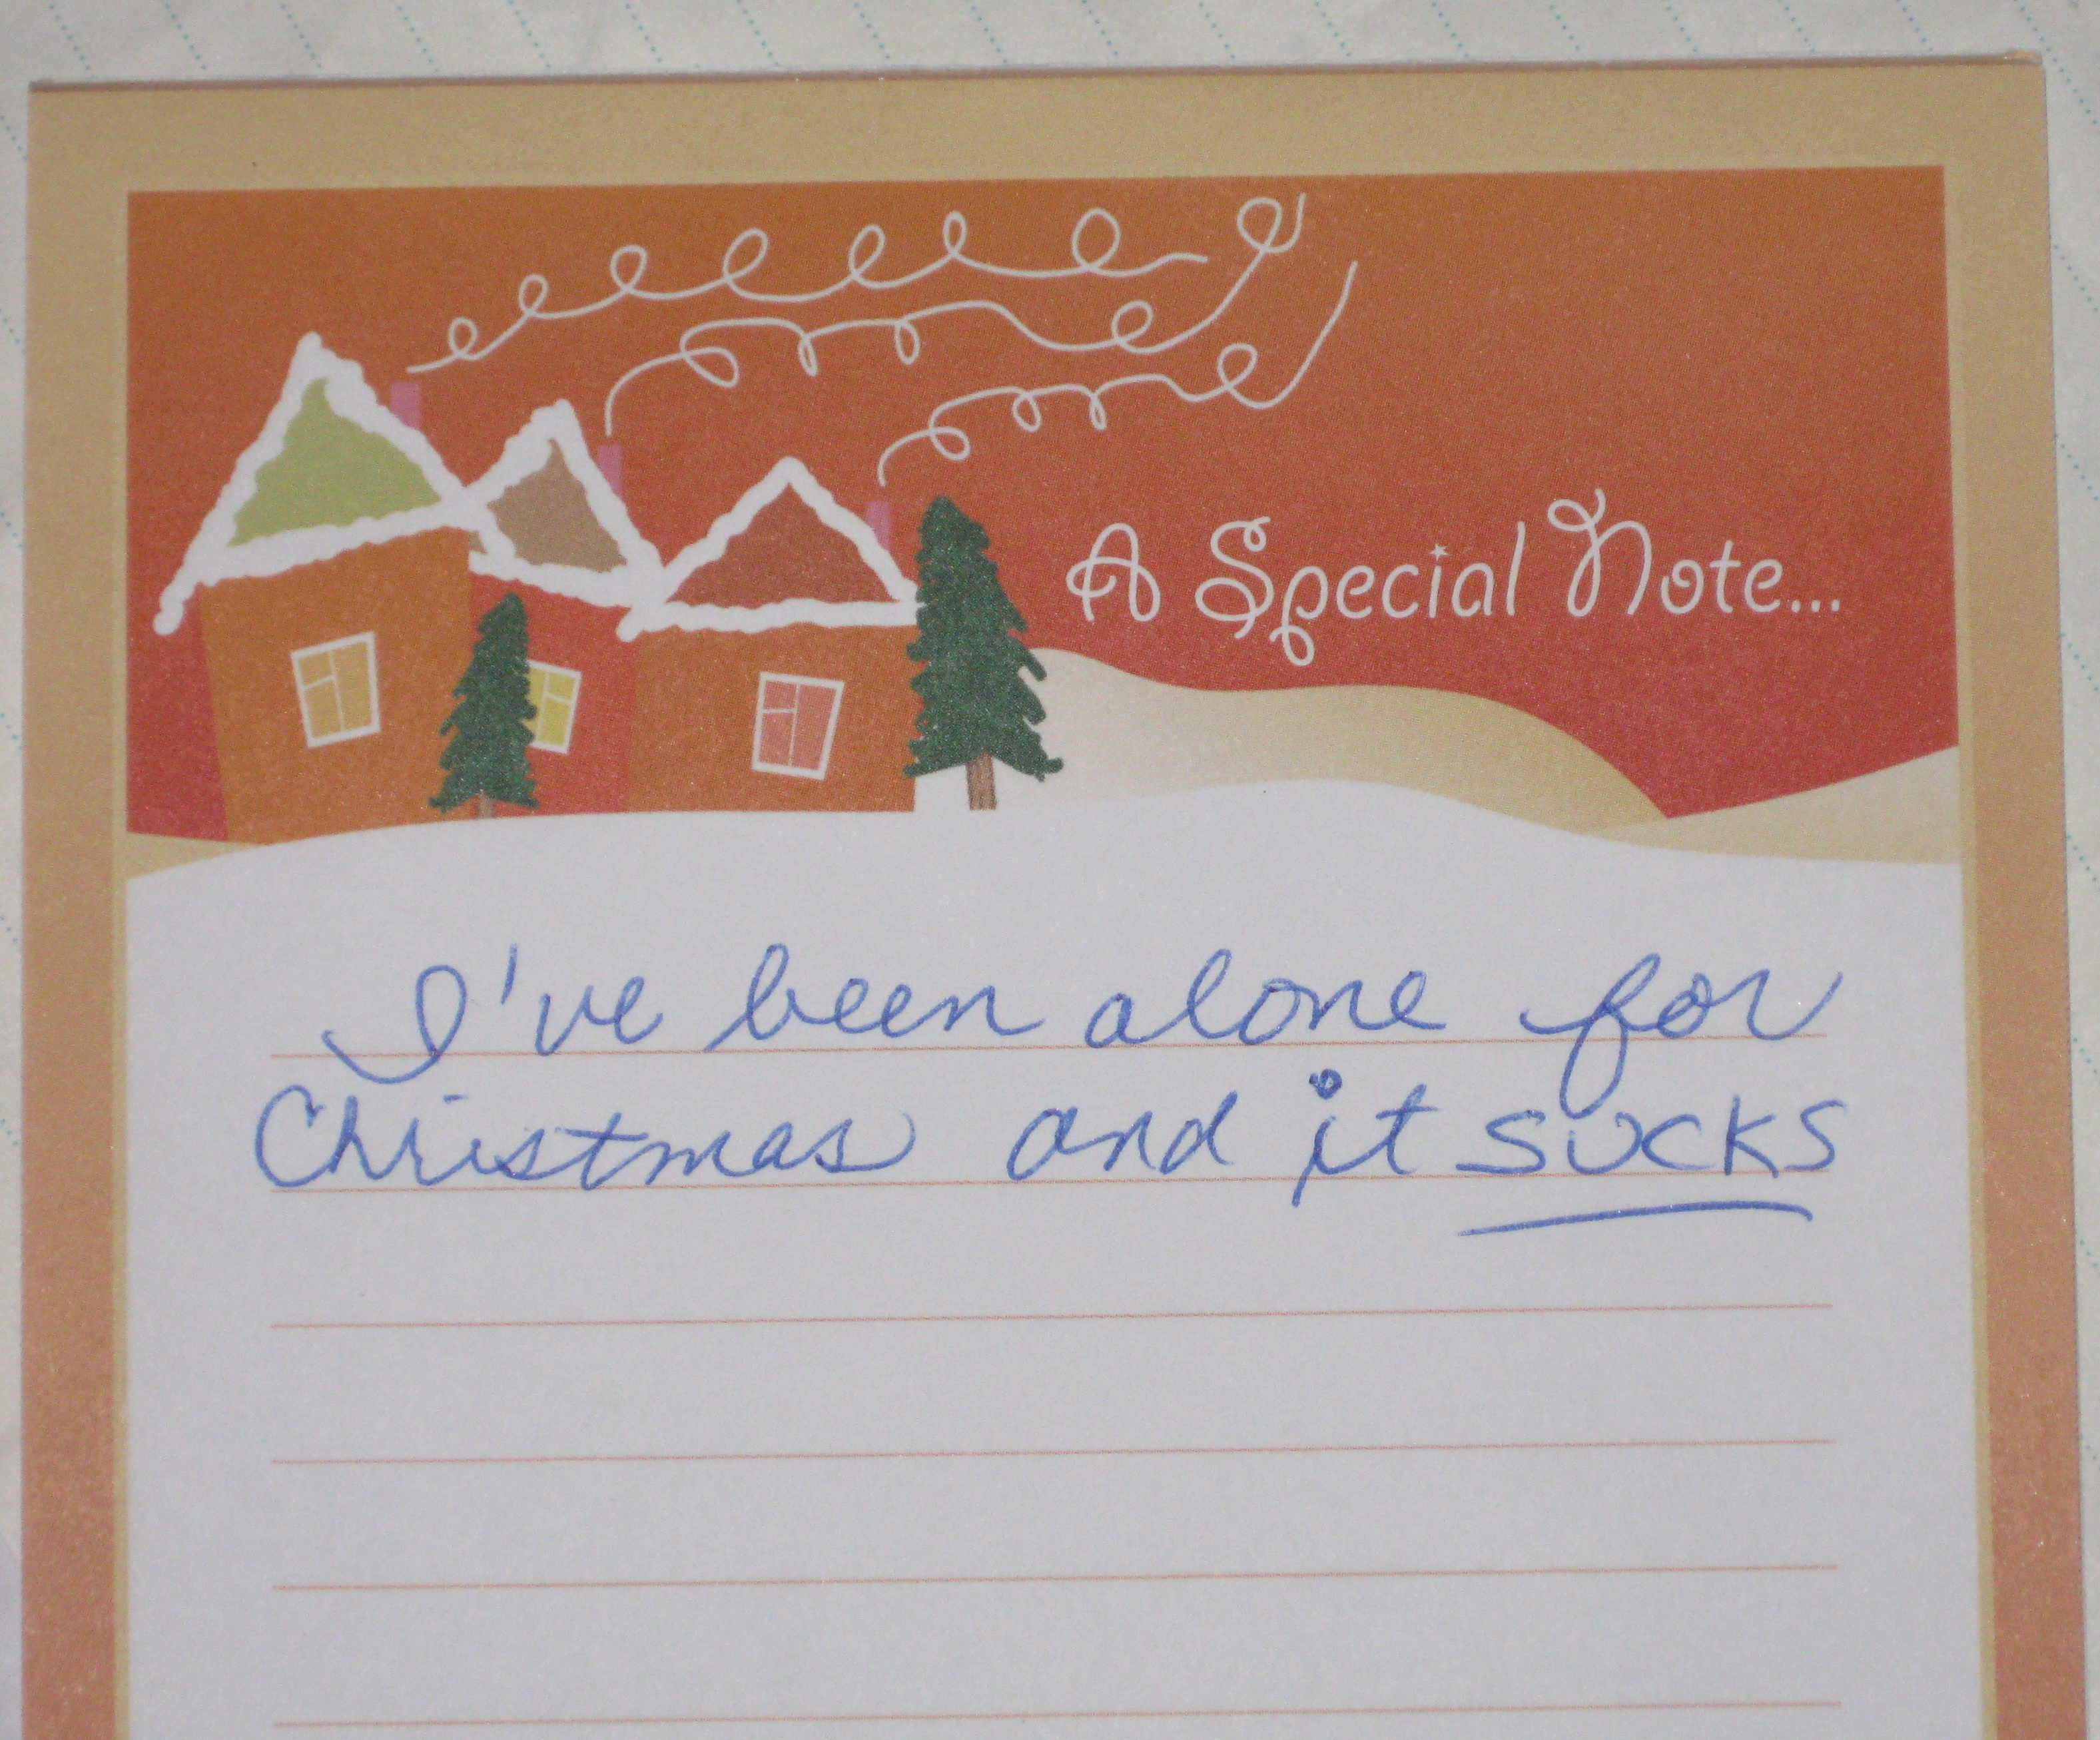 A Special Note...
I've been alone for
Christmas and it SUCKS